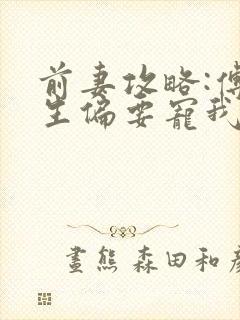 前妻攻略:傅
生偏要寵我
畫熊 森田和彦